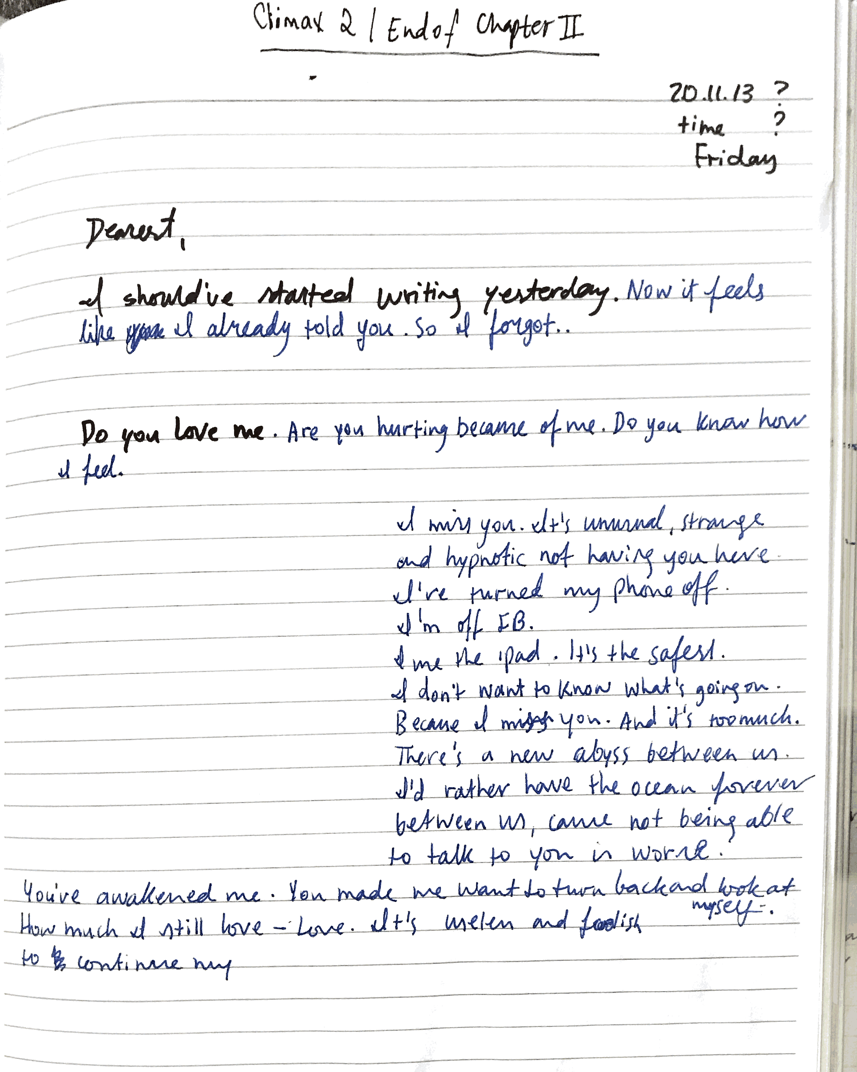 Climax 2 / End of Chapter II
20.11.13 ?
time ?
Friday
Dearest,
I should've started writing yesterday. Now it feels
like I already told you. So I forgot..
Do you love me. Are you hurting because of me. Do you know how
I feel.
I miss you. It's unusual, strange
and hypnotic not having you here.
I've turned my phone off.
I'm off FB.
I use the ipad. It's the safest.
I don't want to know what's going on.
Because I miss you. And it's too much.
There's a new abyss between us.
I'd rather have the ocean forever
between us, cause not being able
to talk to you is worse.
You've awakened me. You made me want to turn back and look at
myself.
How much I still love – Love. It's useless and foolish
to continue my